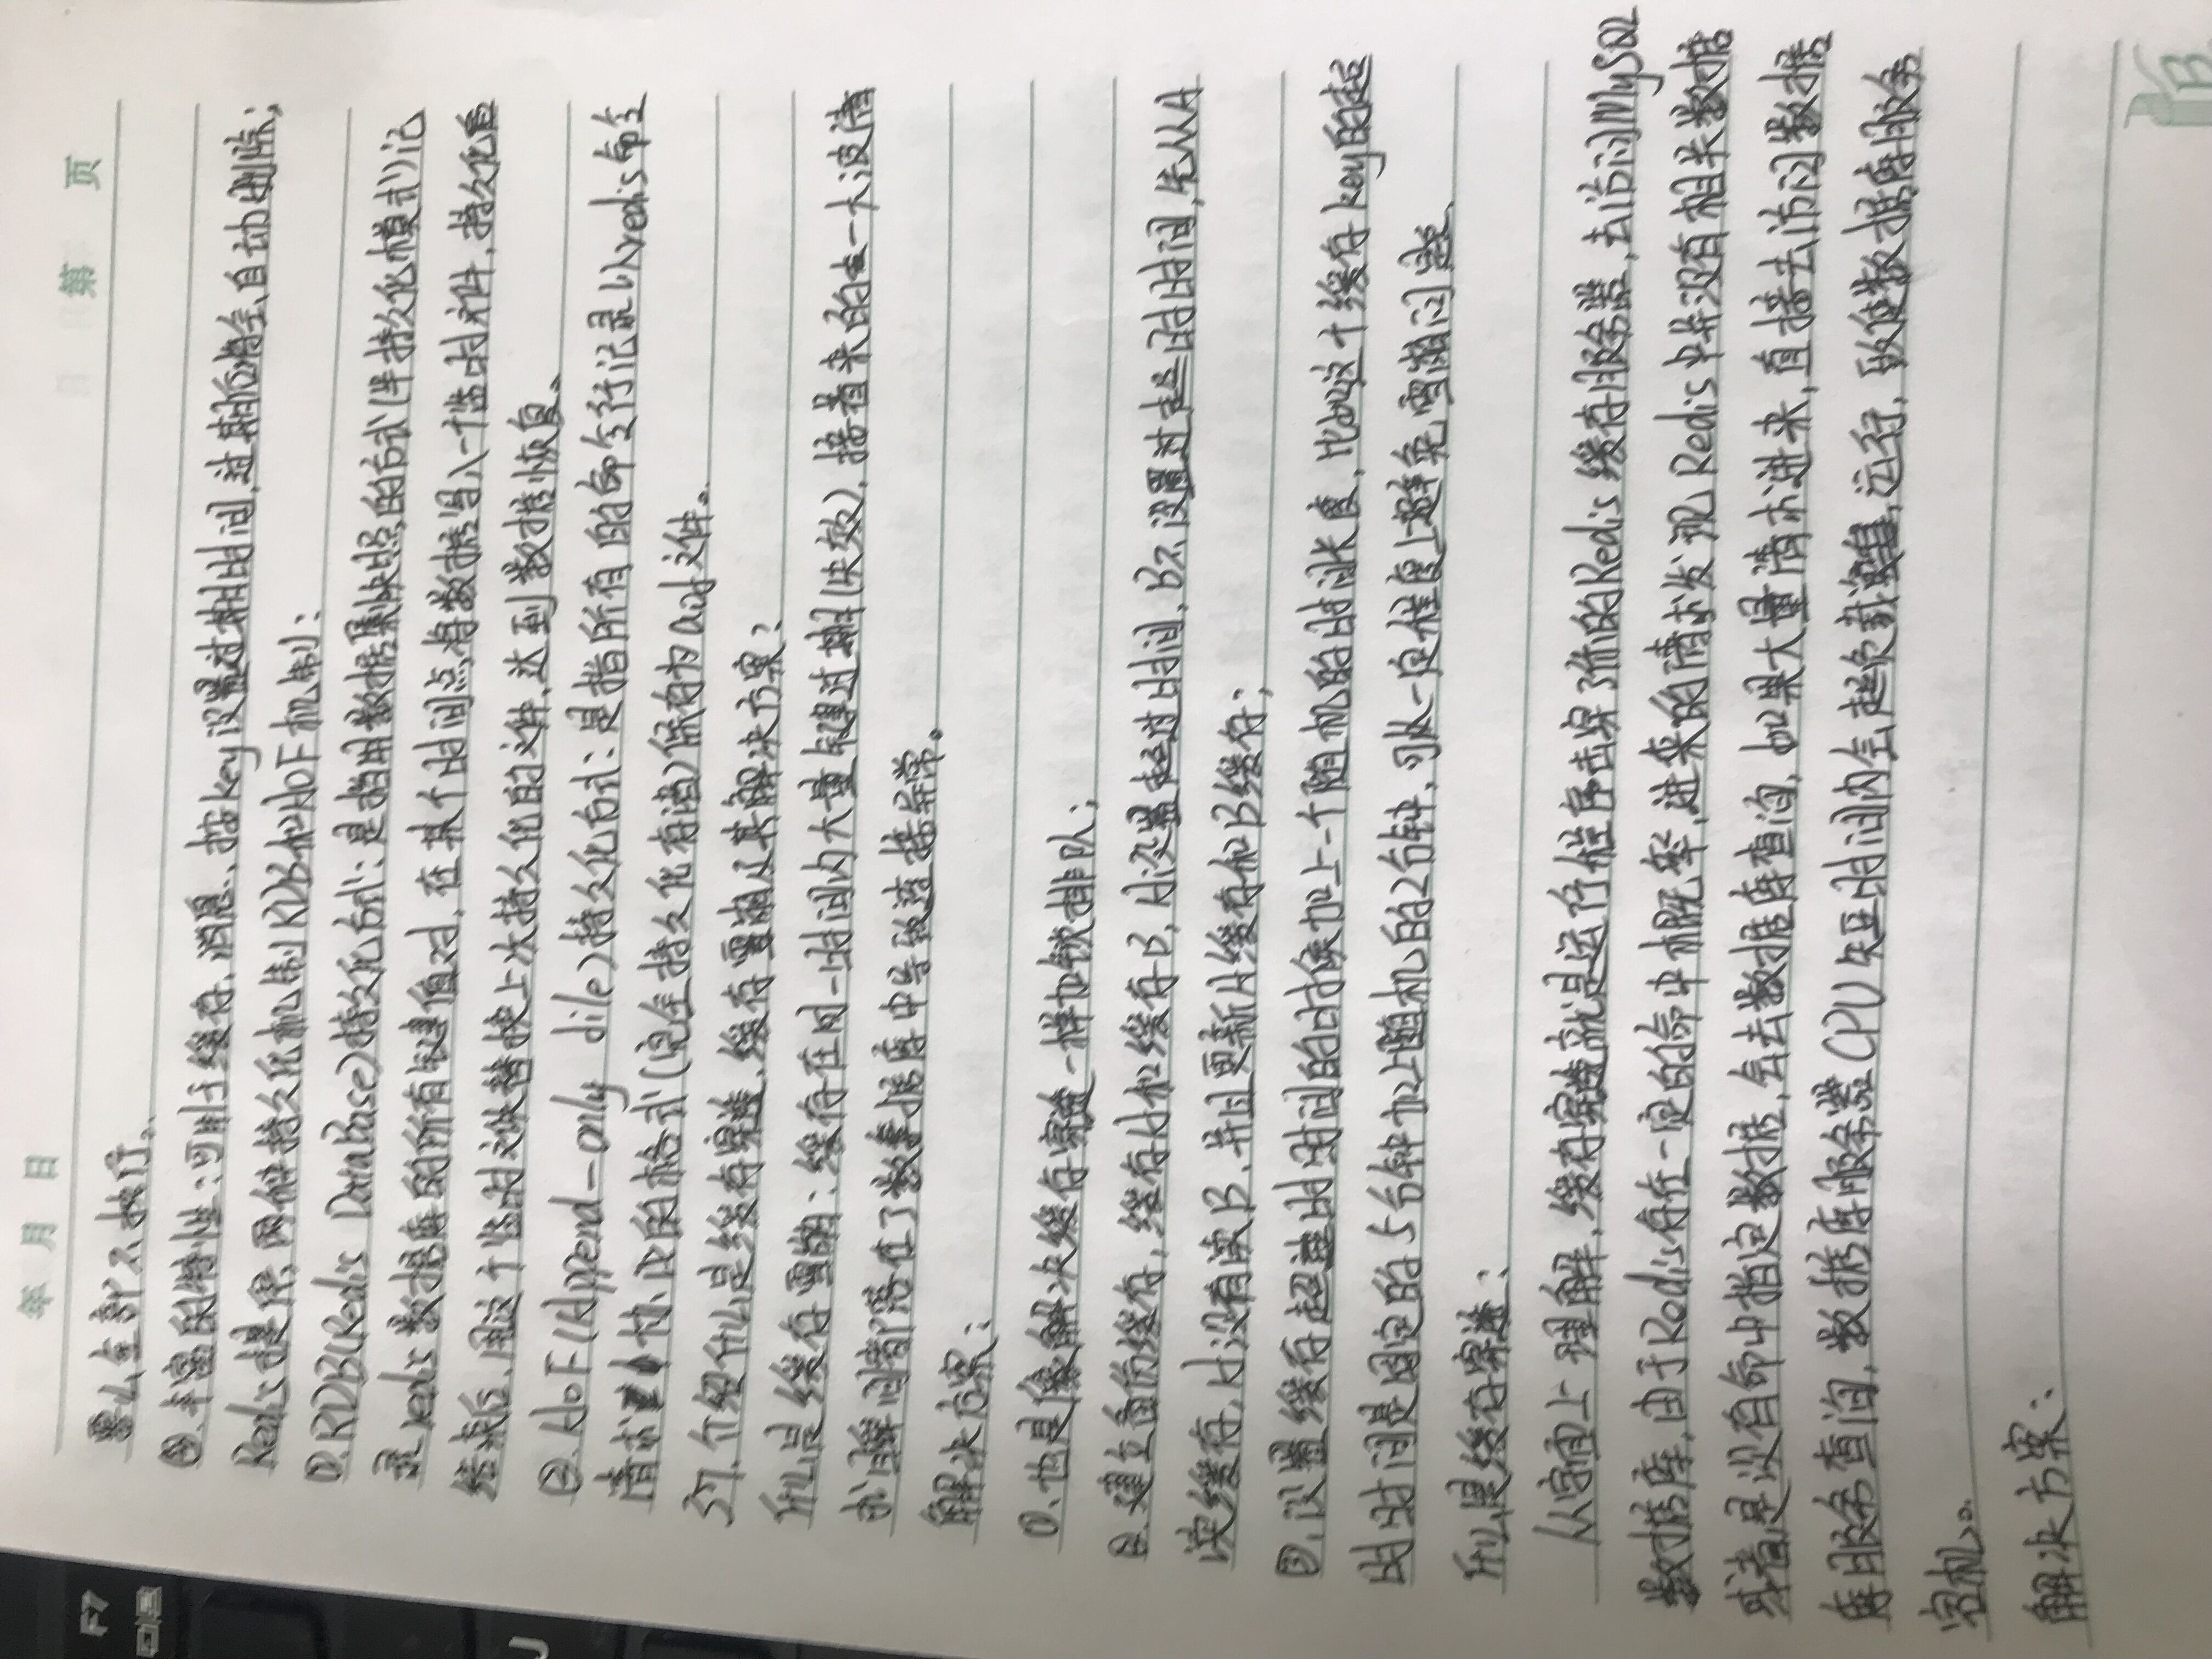 年 月 日
第 页
F7
J
要么全部不执行。
④.丰富的特性:可用于缓存、消息、按key设置过期时间,过期后将会自动删除;
Redis提供两种持久化机制RDB和AOF机制:
①.RDB(Redis DataBase)持久化方式:是指用数据集快照的方式(半持久化模式)记
录redis数据库的所有键值对,在某个时间点将数据写入一个临时文件,持久化
结束后,用这个临时文件替换上次持久化的文件,达到数据恢复。
②.AOF(Append-only file)持久化方式:是指所有的命令行记录以redis命令
请求协议的格式(完全持久化存储)保存为aof文件。
37.介绍什么是缓存穿透、缓存雪崩及其解决方案?
什么是缓存雪崩:缓存在同一时间内大量键过期(失效),接着来的一大波请
求瞬间都落在了数据库中导致连接异常。
解决方案:
①、也是像解决缓存穿透一样加锁排队;
②.建立备份缓存,缓存A和缓存B,A设置超过时间,B不设置过超时时间,先从A
读缓存,A没有读B,并且更新A缓存和B缓存;
③、设置缓存超时时间的时候加上一个随机的时间长度,比如这个缓存key的超
时时间是固定的5分钟加上随机的2分钟,可从一定程度上避免雪崩问题、
什么是缓存穿透:
从字面上理解,缓存穿透就是运行程序击穿了你的Redis缓存服务器,去访问MySQL
数据库,由于Redis存在一定的命中概率,进来的请求发现Redis中并没有相关数据
或者是没有命中指定数据,会去数据库查询,如果大量请求进来,直接去访问数据
库服务查询,数据库服务器CPU短时间内会超负载运行,致使数据库服务
宕机。
解决方案:
B